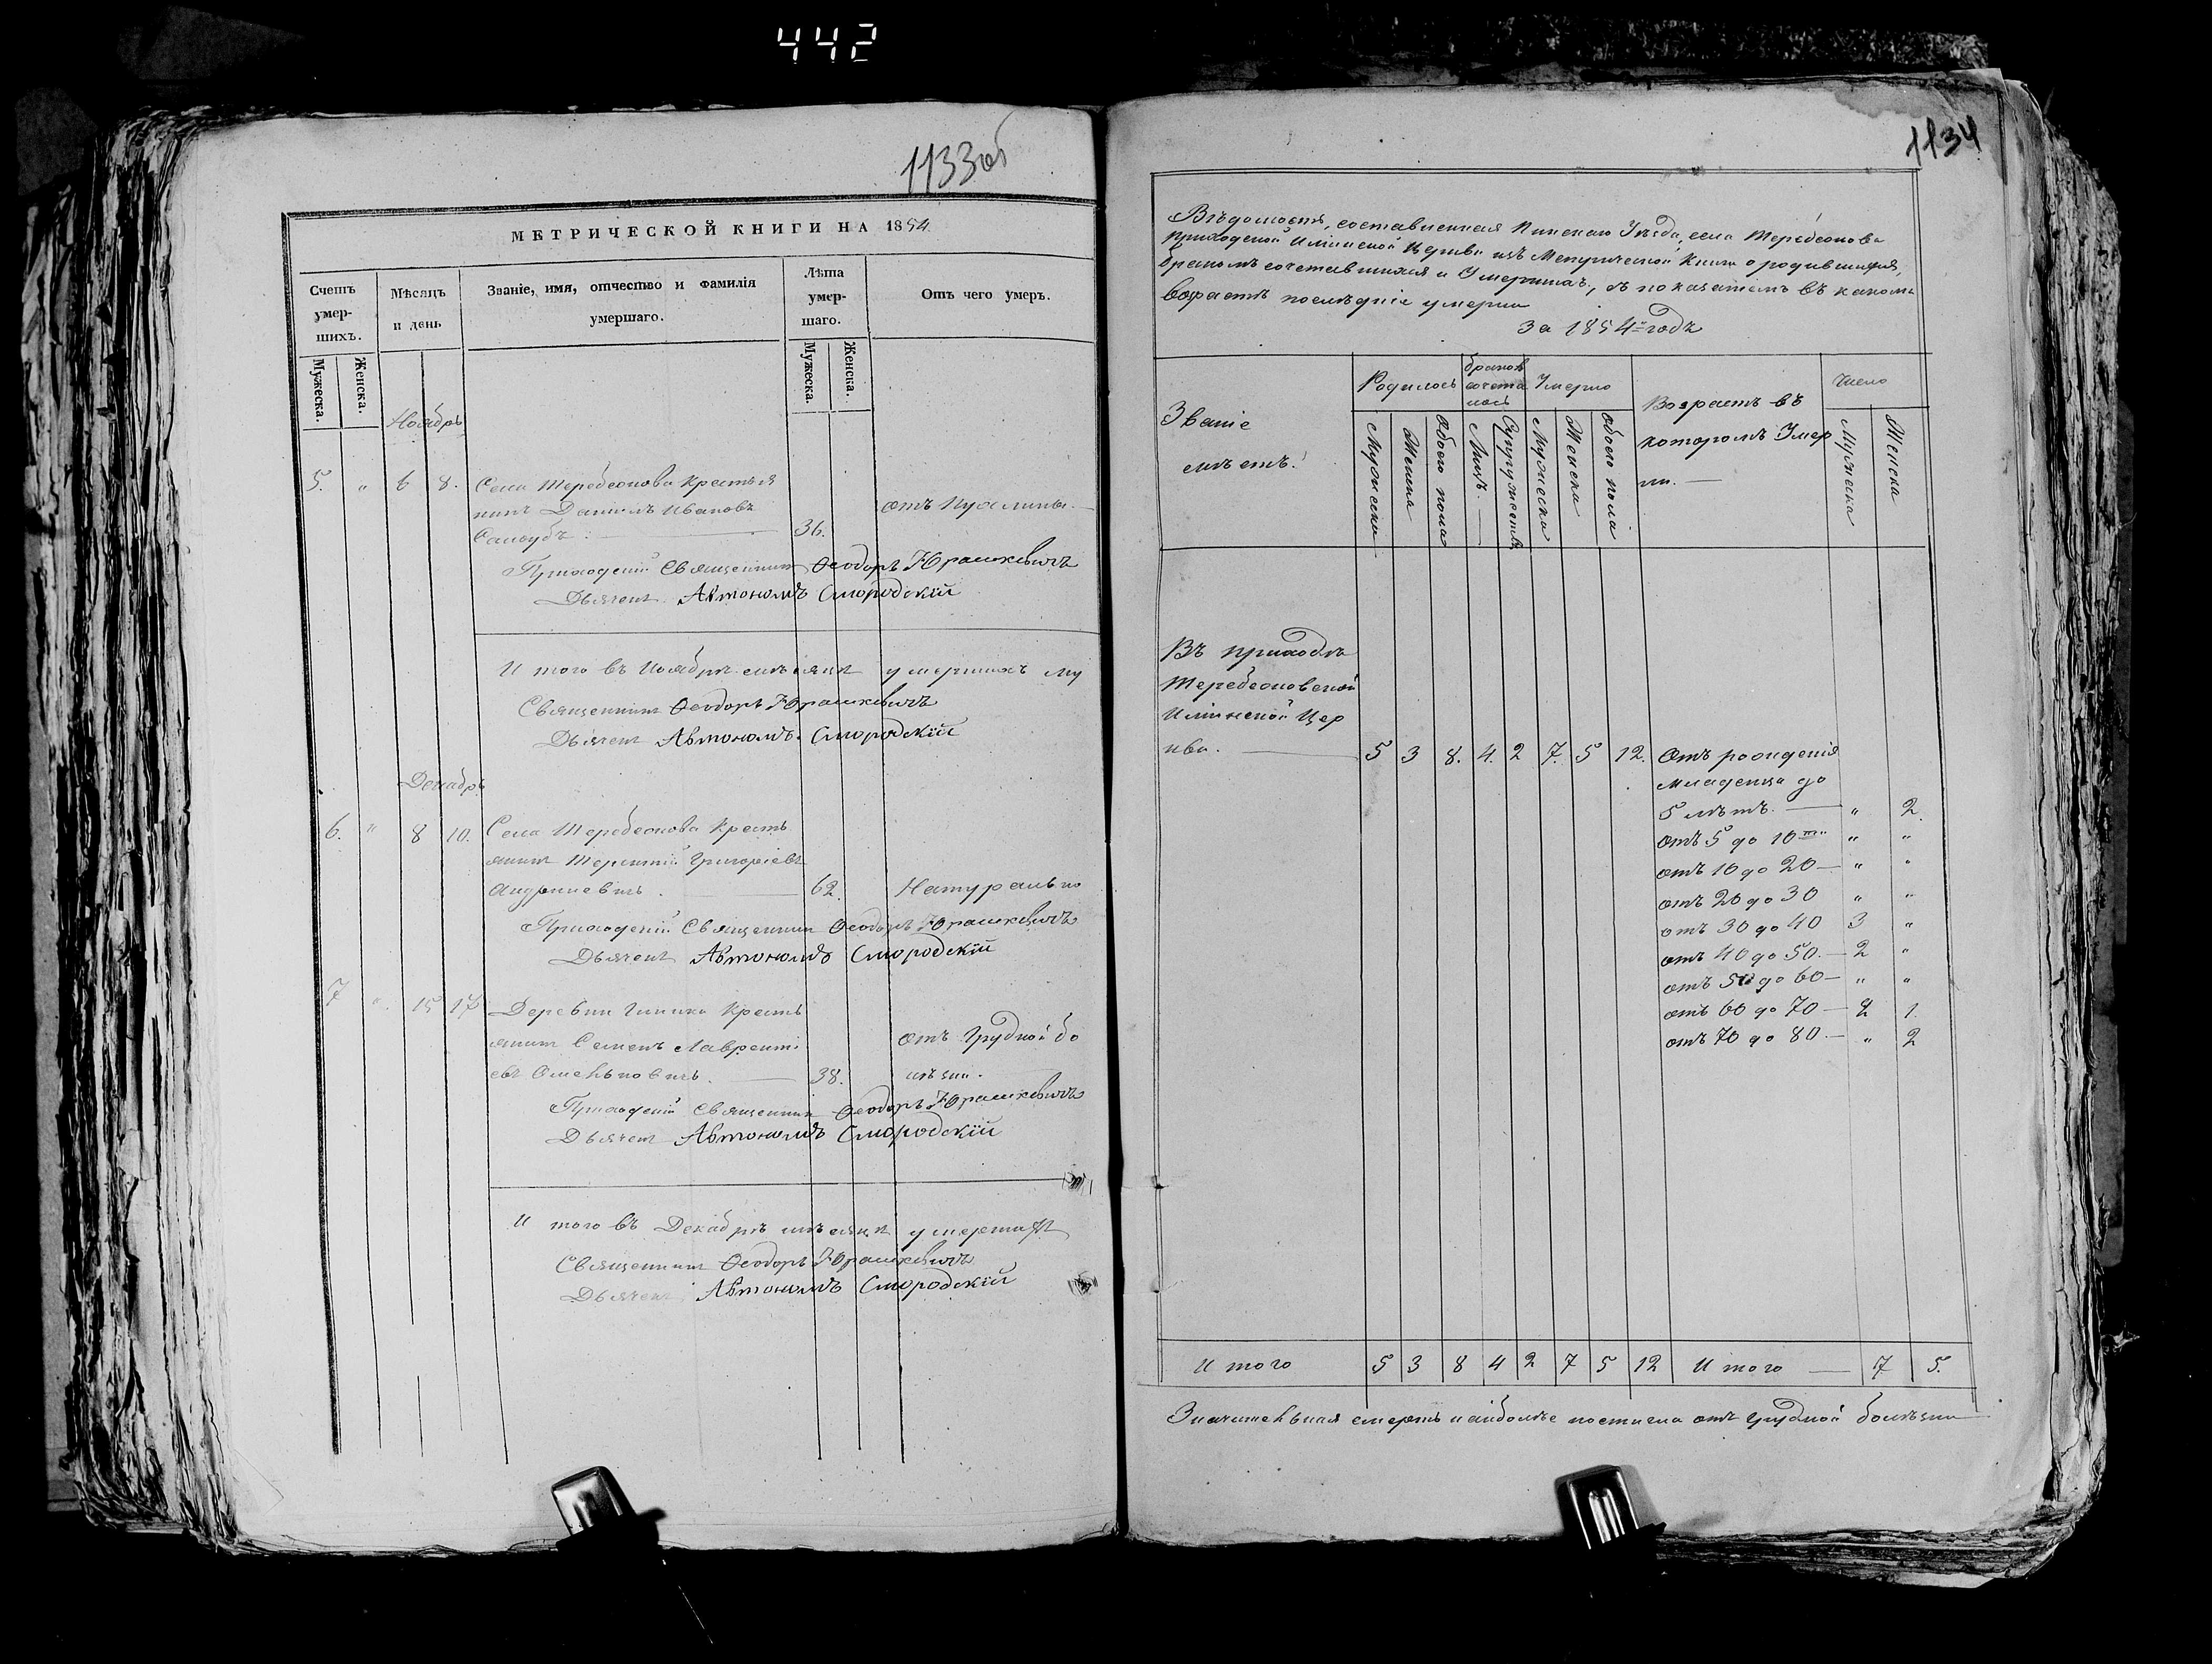 442
1133об
МЕТРИЧЕСКОЙ КНИГИ НА 1854
Счетъ умер-шихъ.
Мѣсяцъ и день
Званіе, имя, отчество и фамилія умершаго.
Лѣта умер-шаго.
Отъ чего умеръ.
Мужеска.
Женска.
Мужеска.
Женска.
Ноябрь
5. " 6 8. Села Теребежова Крестья
нинъ Даніилъ Ивановъ отъ пухлины.
36.
Приходскій Священникъ Ѳеодоръ Юрашкевичъ
Дьячекъ Автономъ Смородскій
И того въ Ноябрѣ мѣсяцѣ умершихъ му
Священникъ Ѳеодоръ Юрашкевичъ
Дьячекъ Автономъ Смородскій
Декабрь
6. " 8 10. Села Теребежова Кресть
янинъ Терентій Григоріевъ
62. Натурально
Приходскій Священникъ Ѳеодоръ Юрашкевичъ
Дьячекъ Автономъ Смородскій
7 " 15 17 Деревни Кресть
янинъ Семенъ Лавренті отъ грудной бо
евъ 38. лѣзни.
Приходскій Священникъ Ѳеодоръ Юрашкевичъ
Дьячекъ Автономъ Смородскій
И того въ Декабрѣ мѣсяцѣ умершихъ
Священникъ Ѳеодоръ Юрашкевичъ
Дьячекъ Автономъ Смородскій
1134
Вѣдомость, составленная Пинскаго Уѣзда, села Теребежова
приходской Ильинской Церкви изъ Метрической Книги о родившихся,
бракомъ сочетавшихся и Умершихъ, съ показаніемъ въ какомъ
возрастѣ послѣдніе умерли
За 1854й годъ
Званіе мѣстъ.
Родилось
бракомъ сочеталось
Умерло
Возрастъ въ которомъ Умерли. —
Число
Мужеска
Женска
Обоего пола
Лицъ. —
Супружествъ
Мужеска
Женска
Обоего пола
Мужеска
Женска
Въ приходѣ
Теребежовской
Ильинской Цер
кви. — 5 3 8. 4. 2 7. 5 12. Отъ рожденія
младенца до
5 лѣтъ. — " 2.
отъ 5 до 10ти " "
отъ 10 до 20 — " "
отъ 20 до 30 " "
отъ 30 до 40 3 "
отъ 40 до 50. — 2 "
отъ 50 до 60 — " "
отъ 60 до 70 — 2 1.
отъ 70 до 80. — " 2
И того 5 3 8 4 2 7 5 12 И того — 7 5.
Значительная смерть наиболѣе постигла отъ грудной болѣзни